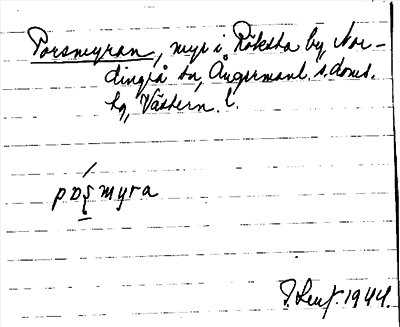 Porsmyran, myr i Röksta by Nor-
dingrå sn, Ångermanl. s. doms.
hg, Västern. l.
porsmyra
1944.